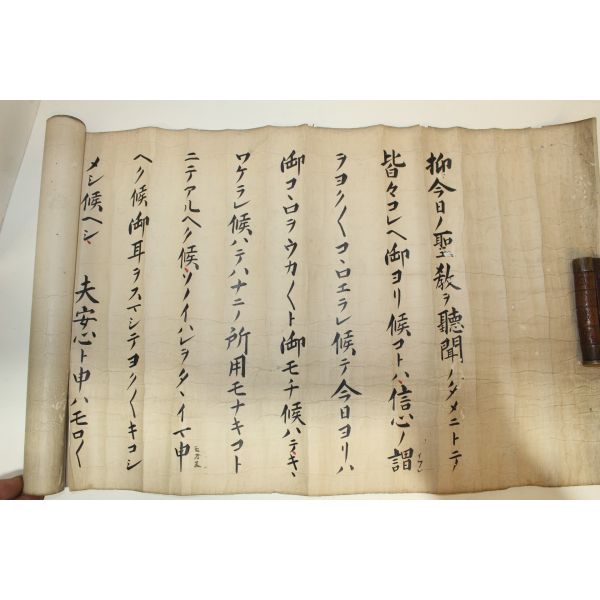 抑今日ノ聖教ヲ聽聞ノタメニトテ
皆々コレヘ御ヨリ候コトハ信心ノ謂
ヲヨク〱コヽロエラレ候テ今日ヨリハ
御コヽロヲウカ〱ト御モチ候ハテキヽ
ワケラレ候ハテハナニノ所用モナキコト
ニテアルヘク候ソノイハレヲタヽイマ申
ヘク候御耳ヲスマシテヨク〱キコシ
メシ候ヘシ 夫安心ト申ハモロ〱